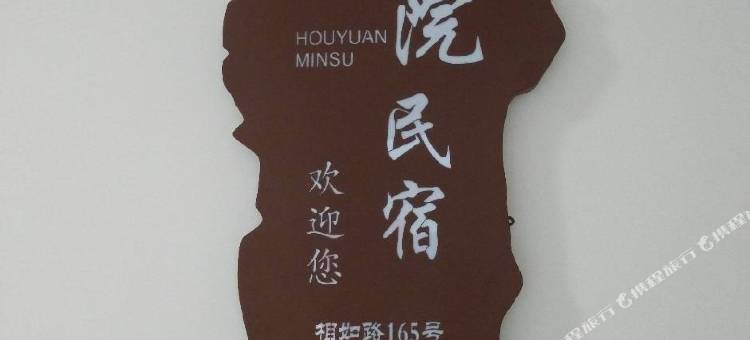 HOUYUAN
MINSU
院民宿
欢迎您
相如路165号
携程旅行
携程旅行